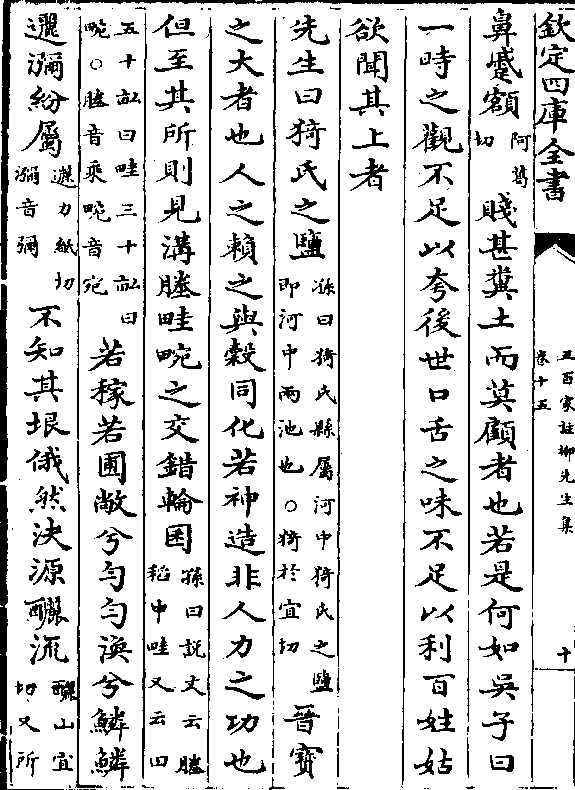 欽定四庫全書
五百家註柳先生集
卷十五
十
鼻蹙額阿葛切賤甚糞土而莫顧者也若是何如吳子曰
一時之觀不足以夸後世口舌之味不足以利百姓姑
欲聞其上者
先生曰猗氏之鹽孫曰猗氏縣屬河中猗氏之鹽即河中兩池也○猗於宜切晉寶
之大者也人之賴之與穀同化若神造非人力之功也
但至其所則見溝塍畦畹之交錯輪囷孫曰説文云塍稻中畦又云田
五十畝曰畦三十畝曰畹○塍音乘畹音宛若稼若圃敞兮勻勻渙兮鱗鱗
邐瀰紛屬邐力紙切瀰音彌不知其垠俄然決源釃流釃山宜切又所